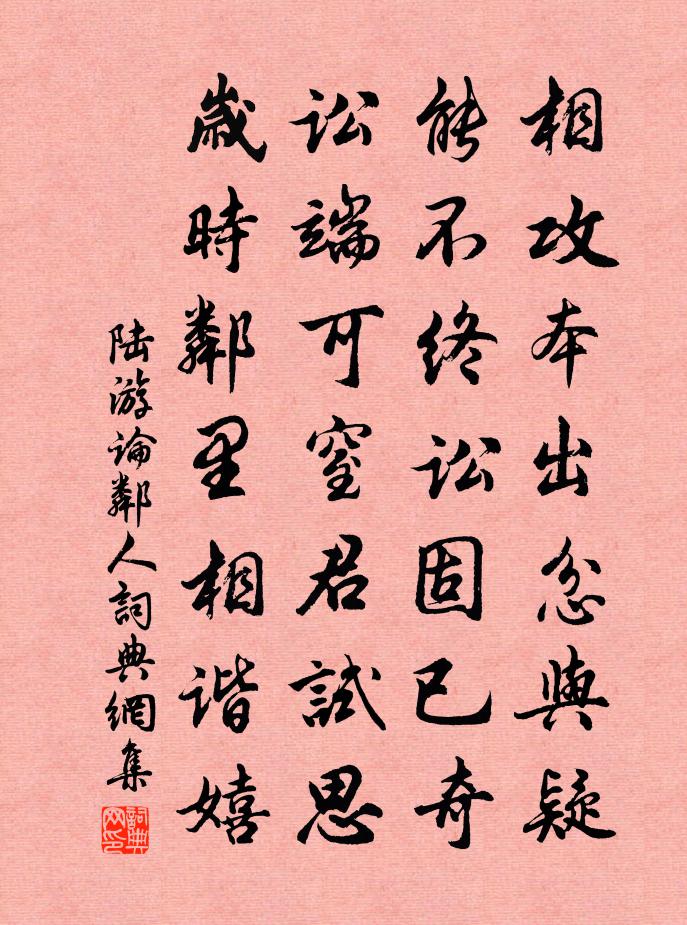 相攻本出忿與疑
能不終訟固已奇
訟端可窒君試思
歲時鄰里相諧嬉
陸游論鄰人詞典網集
詞典网印